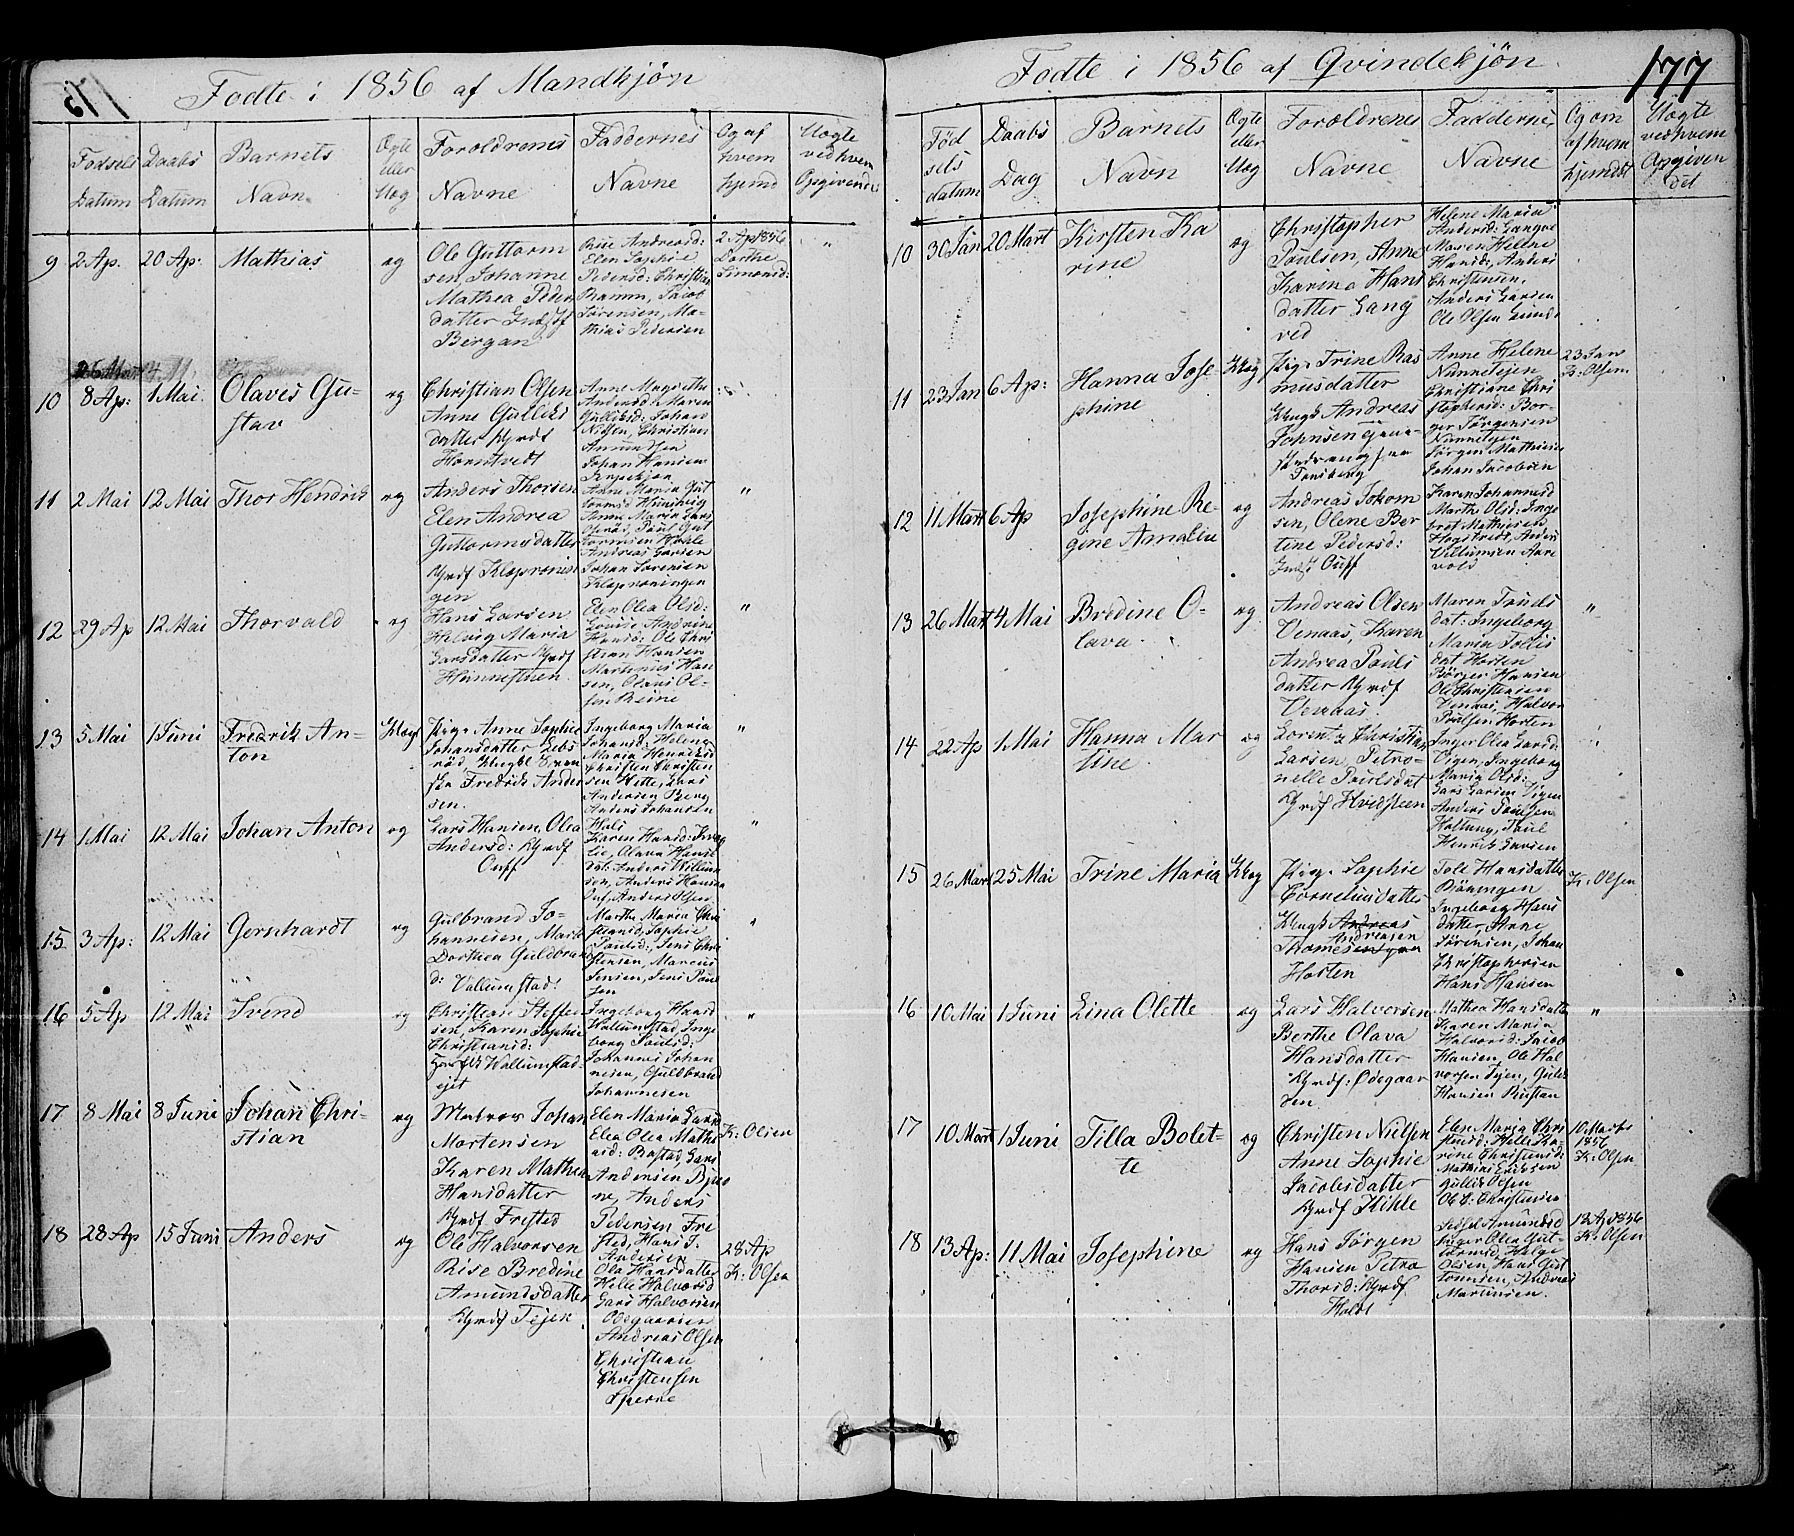 Fodte i 1856 af Mandkjøn
Fodsels Datum
Daabs Datum
Barnets Navn
Ægte eller Uæg
Forældrenes Navne
Faddernes Navne
Og af hvem hjemd
Uægte ved hvem Opgivende
9 2 Ap. 20 Ap: Mathias
æg
Ole Guttorm
sen, Johanne
Mathea Peders
datter
Bergan
Elen Sophie
Pedersd: Christian
Bramm, Jacob
Sørensen, Ma-
thias Pedersen
2 Ap 1856
Dorthe
Simonsd:
"
26 Mart
10 8 Ap: 1 Mai. Olaves Gu-
stav
æg
Christian Olsen
Anne Gulliks
datter Gyrdf
Horntvedt
Anne Magrethe
Andersd: Maren
Gulliksd: Johan
Nielsen, Christian
Amundsen
Johan Hansen
11 2 Mai 12 Mai Thor Hendrik
æg
Anders Thorsen
Elen Andrea
Guttormsdatter
Gyrdf Klopronin
gen
Anne Maria Gut
tormsd
Anne Maria Lars
Paul Gut
tormsen Hohle
Andreas Larsen
Johan Sørensen
Kloproningen
"
12 29 Ap 12 Mai Thorvald
æg
Hans Larsen
Helvig Maria
Larsdatter Gyrdf
Hunnesthen
Elen Olea Olsd:
Lovise Andrine
Hansd: Ole Chri
stian Hansen
Martinus Han
sen, Olaus Ol-
sen Reine
"
13 5 Mai 1 Juni Fredrik An-
ton
Uægt
Pige Anne Sophie
Johansdatter
rød,
Fredrik Ander
sen.
Ingeborg Maria
Johansd: Helene
Maria Henriksd
Christen Christen
sen Hette, Lars
Andersen Berg
Anders Johansen
"
14 1 Mai 12 Mai Johan Anton
æg
Lars Hansen, Olea
Andersd: Gyrdf
Ouff
Karen Hansd:
Olava Hans
dat: Anders Willum
sen, Anders Hansen
Ouf, Anders Olsen
"
15 3 Ap: 12 Mai Gernhardt
æg
Gulbrand Jo-
hannesen, Mar
Dorthea Guldbrand
d: Vallumstad.
Marthe Maria Chri
stiansd, Sophie
Paulsd: Jens Chri
stensen, Marcus
Jensen, Jens Paul
sen
"
16 5 Ap 12 Mai Svend
æg
Christian Steffen
sen, Karen Sophie
Christiansd:
Wallumstad-
ejet
Ingeborg Hansd
Wallumstad, Inge
borg Paulsd:
Johannes Johan
nesen, Guldbrand
Johannesen
"
17 8 Mai 8 Juni Johan Chri-
stian
æg
Matros Johan
Mortensen
Karen Mathea
Hansdatter
Gyrdf Frested
Elen Maria Lars
Elea Olea Mathi
asd: Bastad, Lars
Andersen
ne, Anders
Pedersen Fre
sted, Hans J.
Andersen
K: Olsen
18 28 Ap 15 Juni Anders
æg
Ole Halvorsen
Rise Bredine
Amundsdatter
Gyrdf Tejen
Ola Hansdatter
Helle Halvorsd
Lars Halvorsen
Odegaarden
Andreas Olsen
Christian
Christensen
28 Ap
K: Olsen
Fodte i 1856 af Qvindekjön.
177
Fød sels datum
Daabs Dag
Barnets Navn
Ægte eller Uæg
Forældrenes Navne
Faddernes Navne
Og om af hvem hjemdøbt
Uægte ved hvem Opgiven det
10 30 Jan 20 Mart Kirsten Ka
rine
æg
Christopher
Poulsen, Anne
Karine Hans
datter Lang
ved
Helene Maria
Andersd: Langve
Maren Helene
Hansd:, Anders
Christensen,
Anders Larsen
Ole Olsen
11 23 Jan 6 Ap: Hanna Jose
phine
Uæg
Pige Trine Ras
musdatter
Andreas
Johnsen
Tønsberg
Anne Helene
Nannetejen
Christiane Chri
stophersd: Bor-
ger Jørgensen
Nannetejen
Jørgen Mathisen
Johan Jacobsen
23 Jan
K: Olsen
12 11 Mart 6 Ap Josephine Re-
gine Amalie
æg
Andreas Joh
sen, Olene Ber
tine Pedersd:
Ouff
Karen Johannesd
Marthe Olsd: Inge
bret Mathiesen
Anders
Villumsen Aare
vold
13 26 Mart 4 Mai Bredine O-
lava
æg
Andreas Olsen
Venaas, Karen
Andrea Pouls
datter Gyrdf
Venaas.
Maren Pouls
dat: Ingeborg
Maria
dat Horten
Børger Hansen
Ole Christensen
Venaas, Halvor
Poulsen Horten
"
14 22 Ap 1 Mai Hanna Mar
tine
æg
Lorentz Christian
Larsen, Petro-
nelle Poulsdat
Gyrdf Hvidsteen
Inger Olea Larsd:
Vigen, Ingeborg
Maria Olsd:
Lars Larsen Vigen
Anders Poulsen
Hortung, Poul
Henrik Larsen
"
15 26 Mart 25 Mai Trine Maria
Uæg
Pige Sophie
Corneliusdatter
Ungk Andreas
Andresen
Thomesen
Horten
Hansdatter
Röningen
Ingeborg Hans
datter, Anne
Sørensen, Johan
Christophersen
Hans Hansen
K: Olsen
16 10 Mai 1 Juni Lina Olette
æg
Lars Halvorsen
Berthe Olava
Hansdatter
Gyrdf: Odegaar
den.
Mathea Hansdatter
Karen Maria
Halvorsd: Jacob
Hansen, Ole Hal
vorsen Tejen, Gulik
Hansen Rustan
"
17 10 Mart 1 Juni Tilla Bolet-
te
æg
Christen Nielsen
Anne Sophie
Jacobsdatter
Gyrdf Kihle
Elen Maria Chri
stensd: Helle Ka-
rine Christensd:
Mathias Eriksen
Gullik Olsen
Ole C: Christensen
10 Marts
1856
K: Olsen
18 13 Ap: 11 Mai Josephine
æg
Hans Jørgen
Hansen Petra
Thorsd: Gyrdf
Holdt
Sidsel Amundsd
Inger Olea Gut
tormsd, Helge
Olsen, Hans Gut
tormsen, Andreas
Martinsen.
13 Ap 1856
K: Olsen